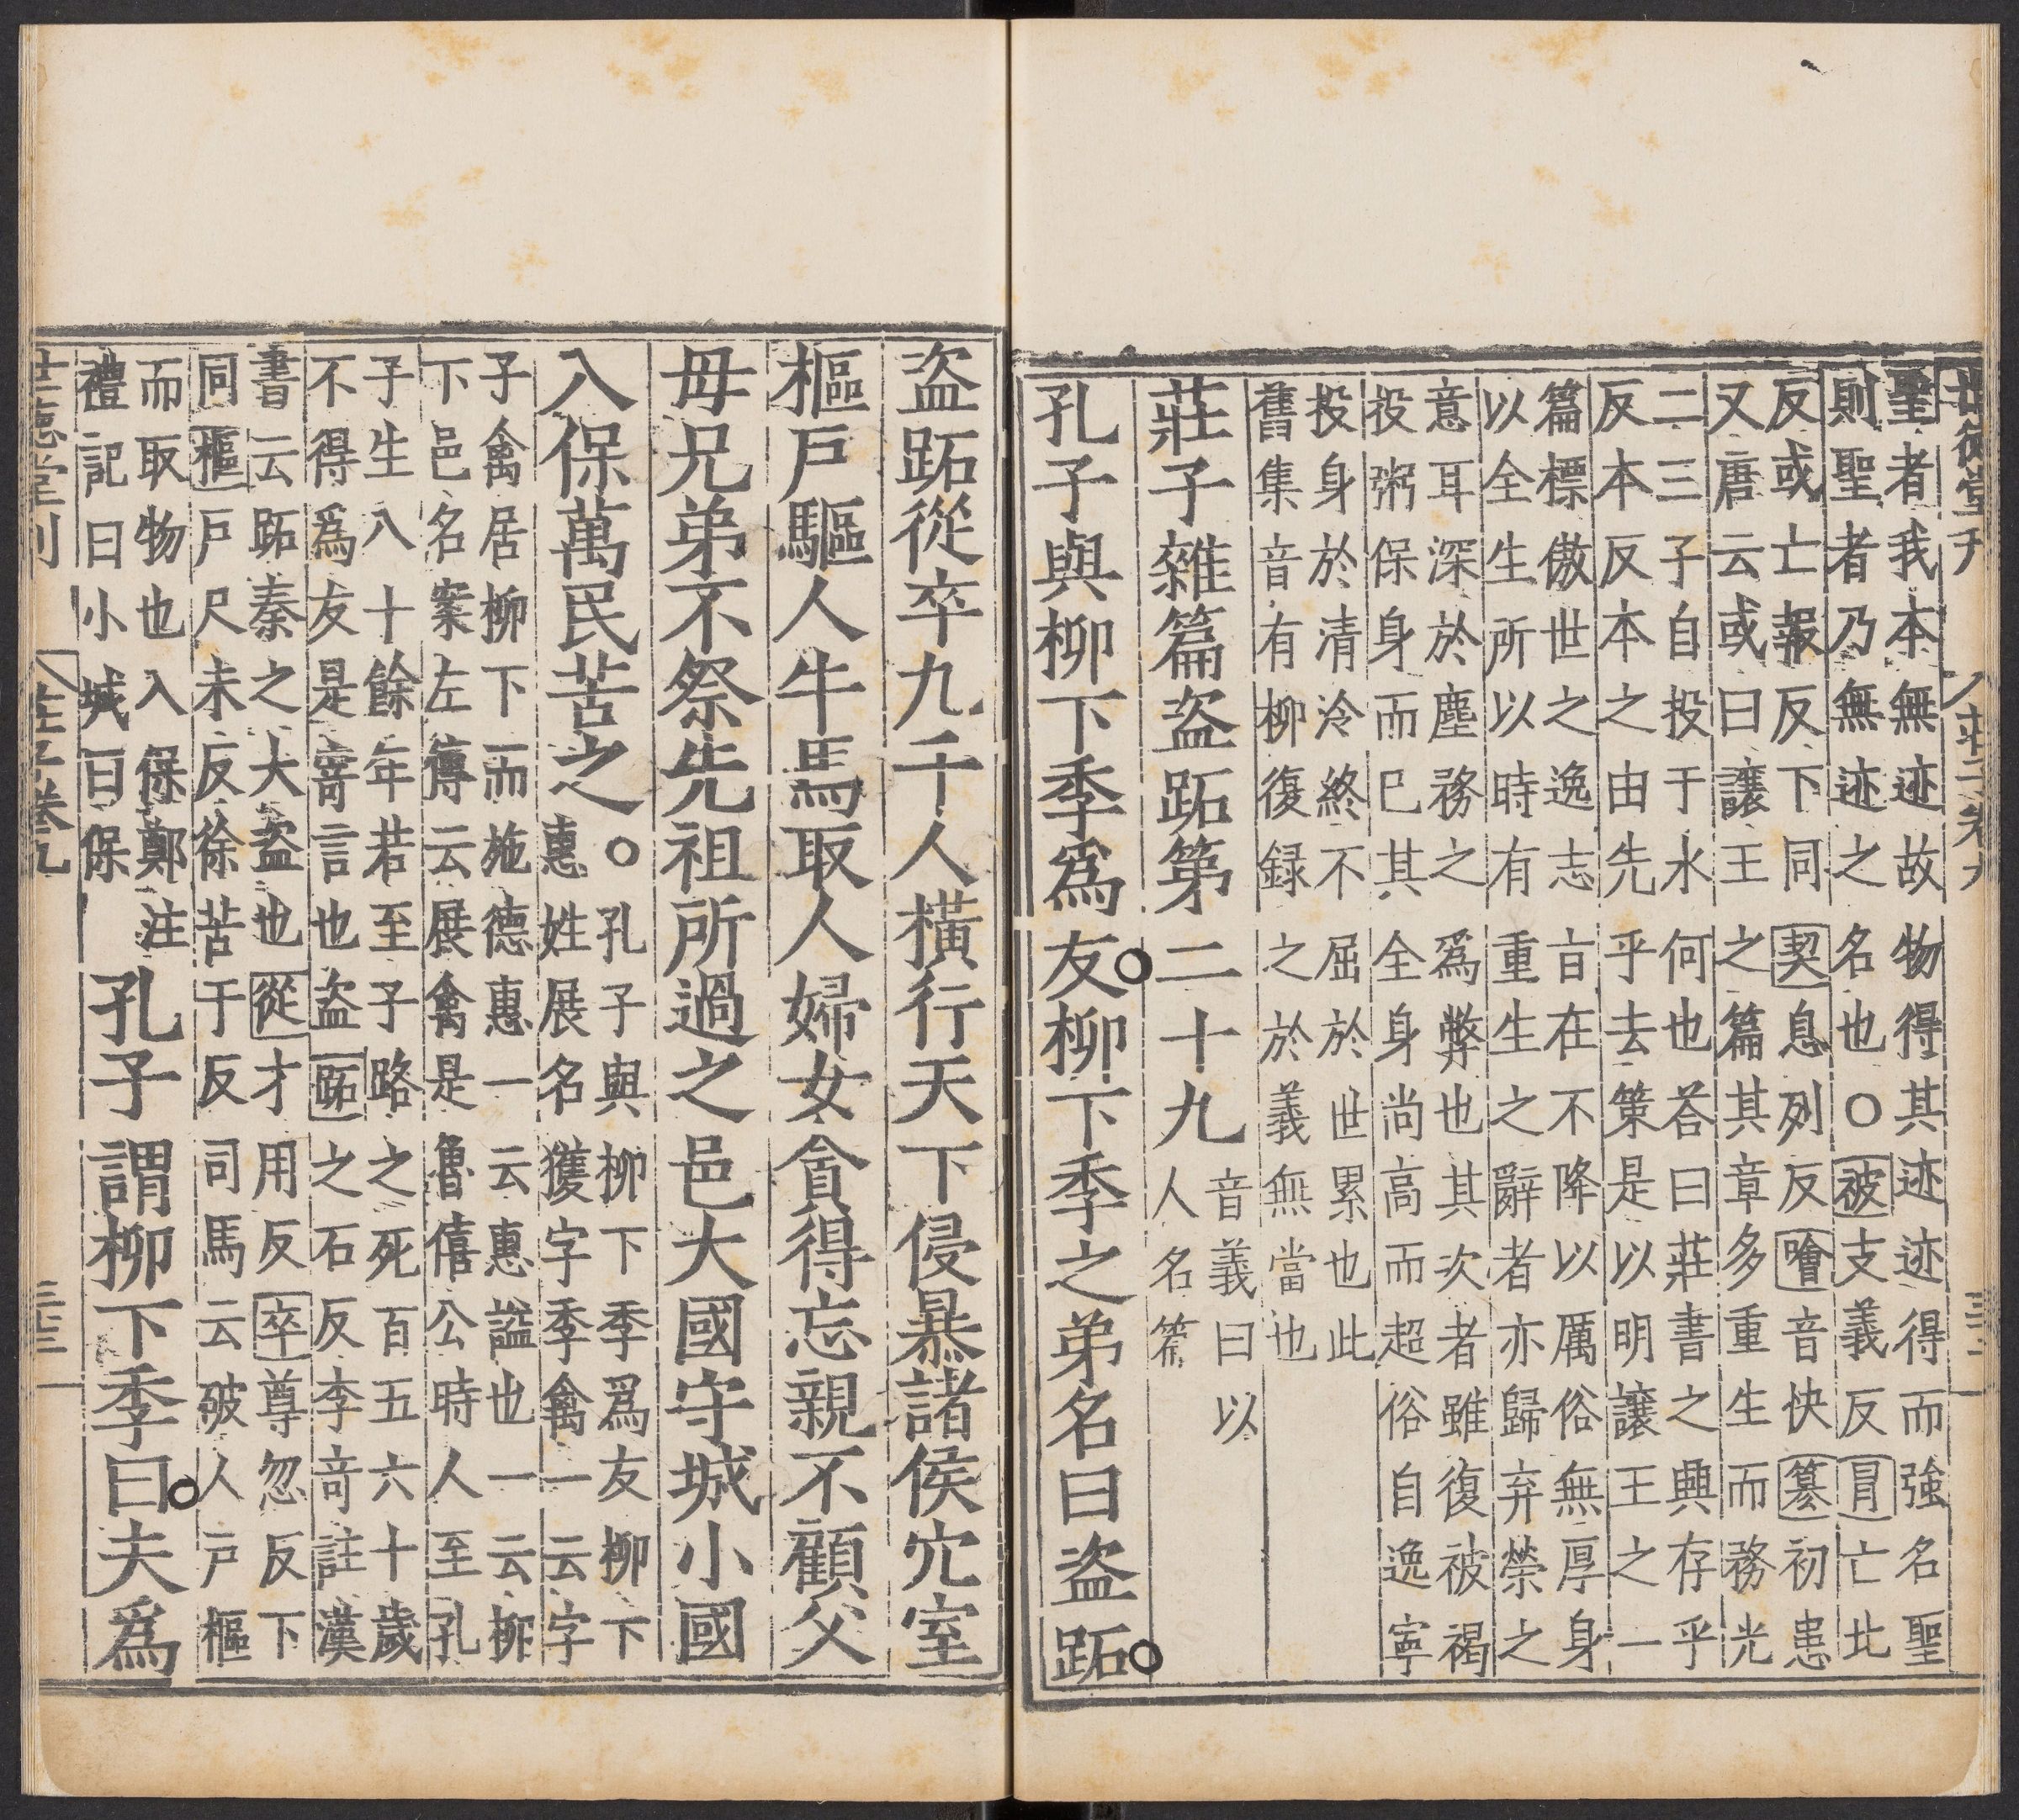 世德堂刊 莊子卷九 三十二
聖者我本無迹故物得其迹迹得而強名聖
則聖者乃無迹之名也○被支義反冒亡北
反或亡報反下同契息列反噲音快篡初患
又唐云或曰讓王之篇其章多重生而務光
二三子自投于水何也荅曰莊書之興存乎
反本反本之由先乎去策是以明讓王之一
篇標傲世之逸志㫖在不降以厲俗無厚身
以全生所以時有重生之辭者亦歸弃榮之
意耳深於塵務之爲弊也其次者雖復被褐
投粥保身而已其全身尚高而超俗自逸寧
投身於清泠終不屈於世累也此
舊集音有柳復録之於義無當也
莊子雜篇盜跖第二十九
音義曰以
人名篇
孔子與柳下季爲友柳下季之弟名曰盜跖
盜跖從卒九千人橫行天下侵暴諸侯穴室
樞戶驅人牛馬取人婦女貪得忘親不顧父
母兄弟不祭先祖所過之邑大國守城小國
入保萬民苦之
○孔子與柳下季爲友柳下
惠姓展名獲字季禽一云字
子禽居柳下而施德惠一云惠謚也一云柳
下邑名案左傳云展禽是魯僖公時人至孔
子生八十餘年若至子路之死百五六十歲
不得爲友是寄言也盜跖之石反李竒註漢
書云跖秦之大盜也從才用反卒尊忽反下
同樞戶尺朱反徐苦于反司馬云破人戶樞
而取物也入保鄭注
禮記曰小城曰保
孔子謂柳下季曰夫爲
世德堂刊 莊子卷九 三十三